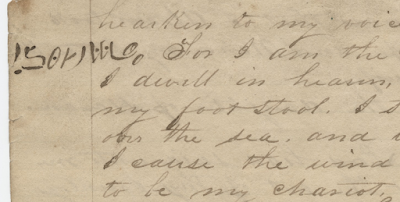 hearken to my voic
For I am the
I dwell in heaven,
my foot stool. I s
over the sea. and
I cause the wind
to be my chariot,